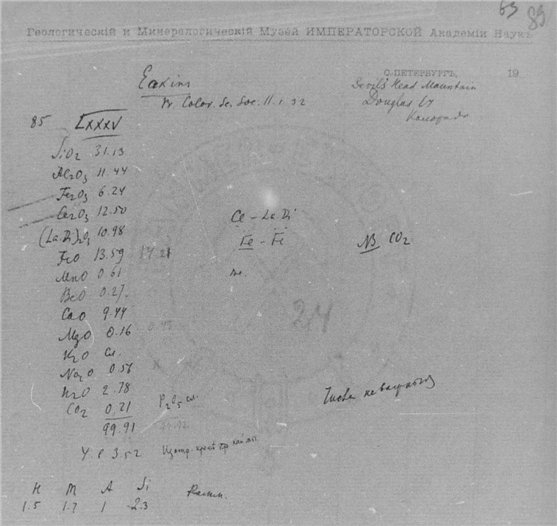 63 83
Геологическій и Минералогическій Музей ИМПЕРАТОРСКОЙ Академіи Наукъ
С.-ПЕТЕРБУРГЪ, 19
Eakins
Pr. Color. Sc. Soc. II. 1. 32
Devil's Head Mountain
Douglas
85 LXXXV
SiO2 31.13
Al2O3 11.44
Fe2O3 6.24
Ce2O3 12.50
(La.Di)2O3 10.98
FeO 13.59
MnO 0.61
BeO 0.27.
CaO 9.44
MgO 0.16
K2O Сл.
Na2O 0.56
H2O 2.78
CO2 0.21
99.91
P2O5 сл.
Ce - La.Di
Fe - Fe
NB CO2
24
У. в 3.52
H M A Si
1.5 1.7 1 2.3